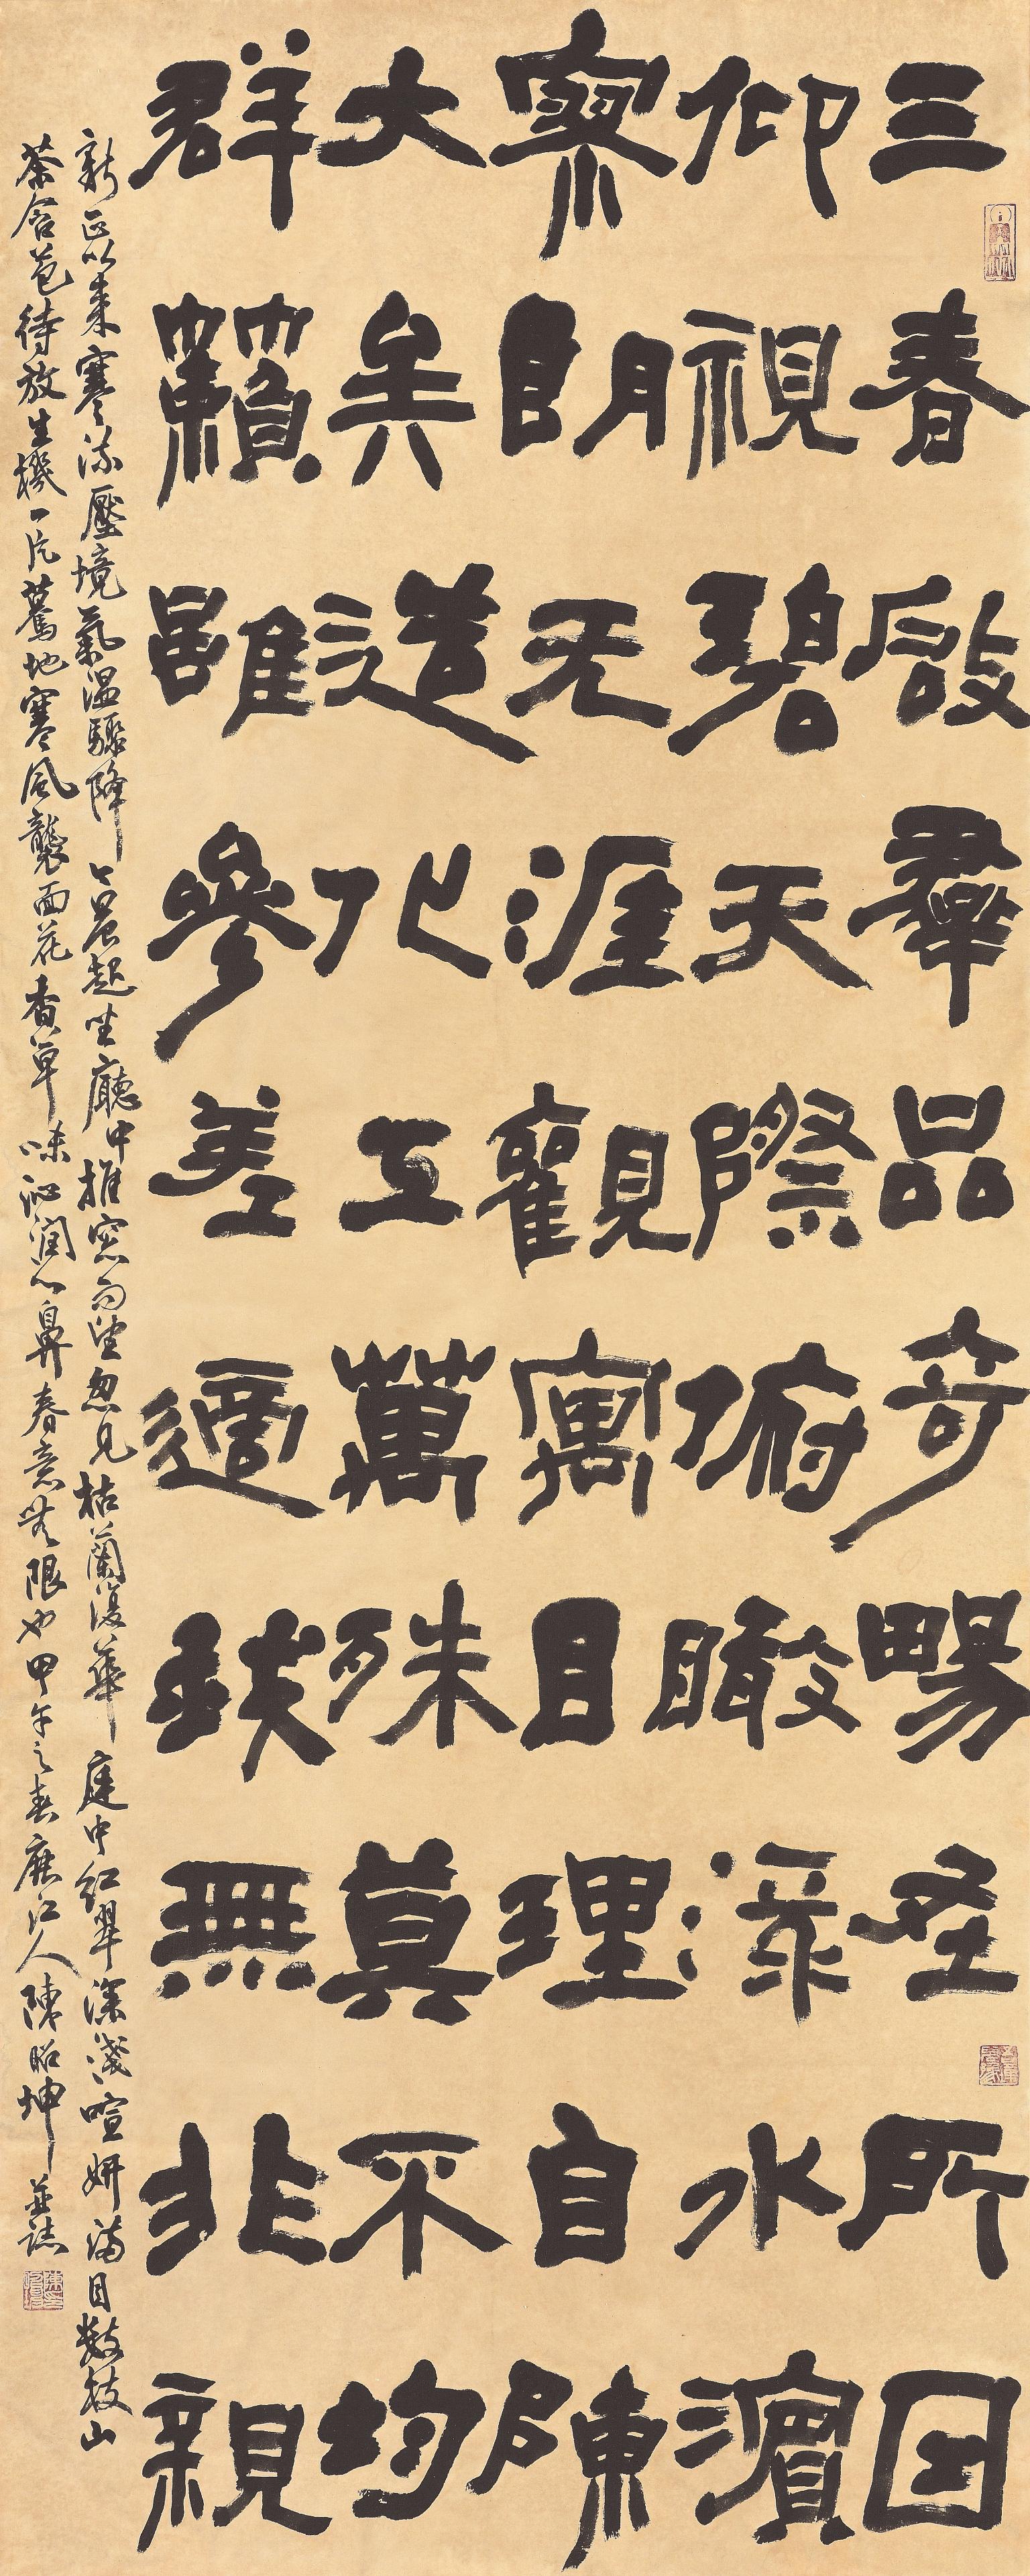 三春啟羣品寄暢在所因
仰視碧天際俯瞰淥水濱
寥朗无涯觀寓目理自陳
大矣造化工萬殊莫不均
群籟雖參差適我無非親
新正以來寒流壓境氣溫驟降今晨起坐廳中推窗而望忽見枯蘭復華庭中紅翠深淺喧妍滿目數枝山
茶含苞待放生機一片驀地寒風襲面花香草味沁潤心鼻春意無限也甲午之春鹿江人陳昭坤並誌